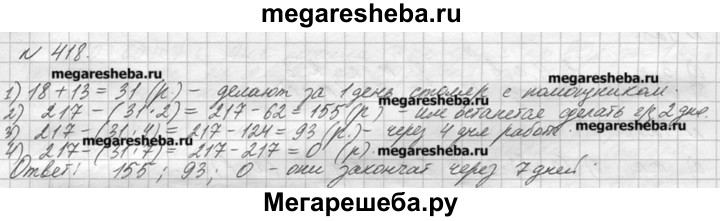 megaresheba.ru
N 418.
megaresheba.ru megaresheba.ru
1) 18 + 13 = 31 (р) - делают за 1 день столяр с помощником.
2) 217 - (31·2) = 217 - 62 = 155 (р) - им останется сделать чр 2 дня.
3) 217 - (31·4) = 217 - 124 = 93 (р) - через 4 дня работы.
megaresheba.ru megaresheba.ru
4) 217 - (31·7) = 217 - 217 = 0 (р).
Ответ: 155; 93; 0 - они закончат через 7 дней.
Мегарешеба.ру